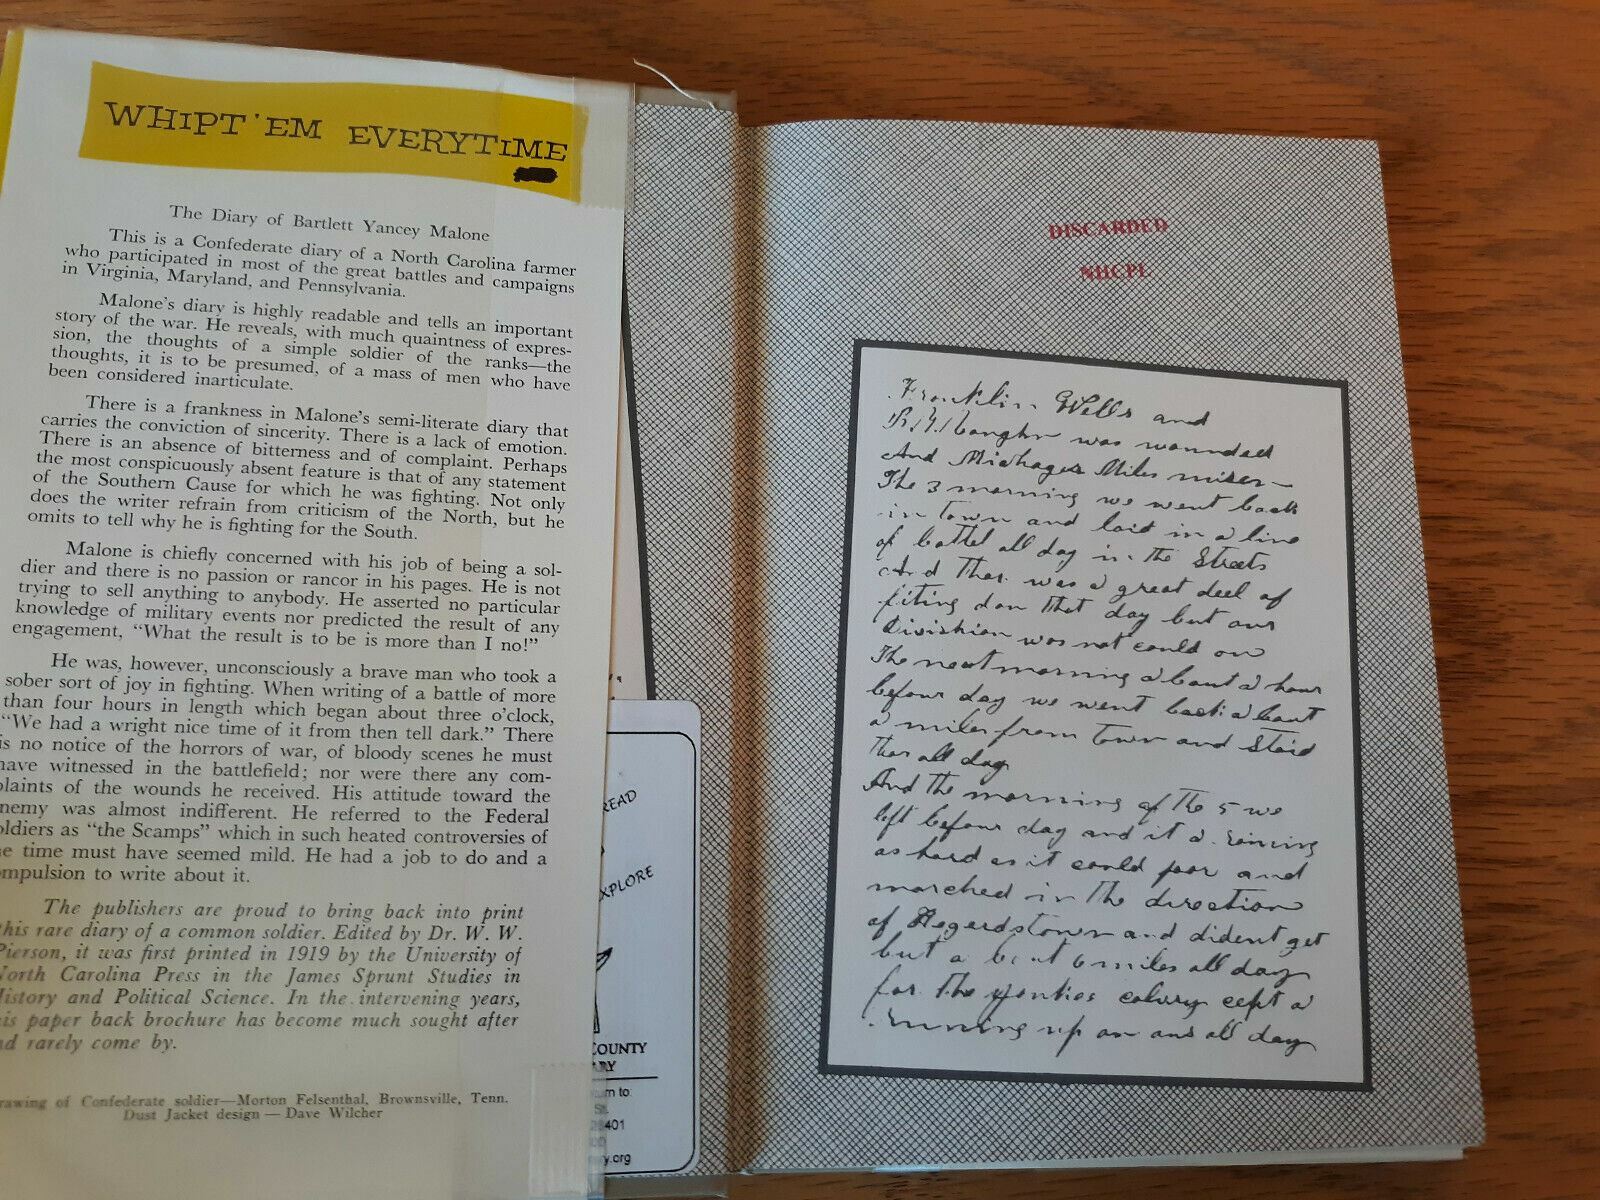 WHIPT 'EM EVERYTIME
The Diary of Bartlett Yancey Malone
This is a Confederate diary of a North Carolina farmer
who participated in most of the great battles and campaigns
in Virginia, Maryland, and Pennsylvania.
Malone's diary is highly readable and tells an important
story of the war. He reveals, with much quaintness of expres-
sion, the thoughts of a simple soldier of the ranks—the
thoughts, it is to be presumed, of a mass of men who have
been considered inarticulate.
There is a frankness in Malone's semi-literate diary that
carries the conviction of sincerity. There is a lack of emotion.
There is an absence of bitterness and of complaint. Perhaps
the most conspicuously absent feature is that of any statement
of the Southern Cause for which he was fighting. Not only
does the writer refrain from criticism of the North, but he
omits to tell why he is fighting for the South.
Malone is chiefly concerned with his job of being a sol-
dier and there is no passion or rancor in his pages. He is not
trying to sell anything to anybody. He asserted no particular
knowledge of military events nor predicted the result of any
engagement, "What the result is to be is more than I no!"
He was, however, unconsciously a brave man who took a
sober sort of joy in fighting. When writing of a battle of more
than four hours in length which began about three o'clock,
"We had a wright nice time of it from then tell dark." There
is no notice of the horrors of war, of bloody scenes he must
have witnessed in the battlefield; nor were there any com-
plaints of the wounds he received. His attitude toward the
enemy was almost indifferent. He referred to the Federal
oldiers as "the Scamps" which in such heated controversies of
e time must have seemed mild. He had a job to do and a
ompulsion to write about it.
The publishers are proud to bring back into print
this rare diary of a common soldier. Edited by Dr. W. W.
Pierson, it was first printed in 1919 by the University of
North Carolina Press in the James Sprunt Studies in
History and Political Science. In the intervening years,
his paper back brochure has become much sought after
nd rarely come by.
rawing of Confederate soldier—Morton Felsenthal, Brownsville, Tenn.
Dust Jacket design — Dave Wilcher
READ
EXPLORE
COUNTY
ARY
urn to:
St.
8401
y.org
DISCARDED
NHCPL
Franklin Wells and
was wounded
And Miles misen
The 3 morning we went back
in town and laid in a line
of battel all day in the Streets
And Thar was a great deel of
fiting don that day but our
Divishion was not could on
The next morning a bout a hour
befour day we went back a bout
a miles from Town and Staid
thar all day
And the morning of the 5 we
left befour day and it a raining
as hard as it could poor and
marched in the direction
of Hegerdstown and dident get
but a bout 6 miles all day
for the yankies calvry cept a
running up on ans all day